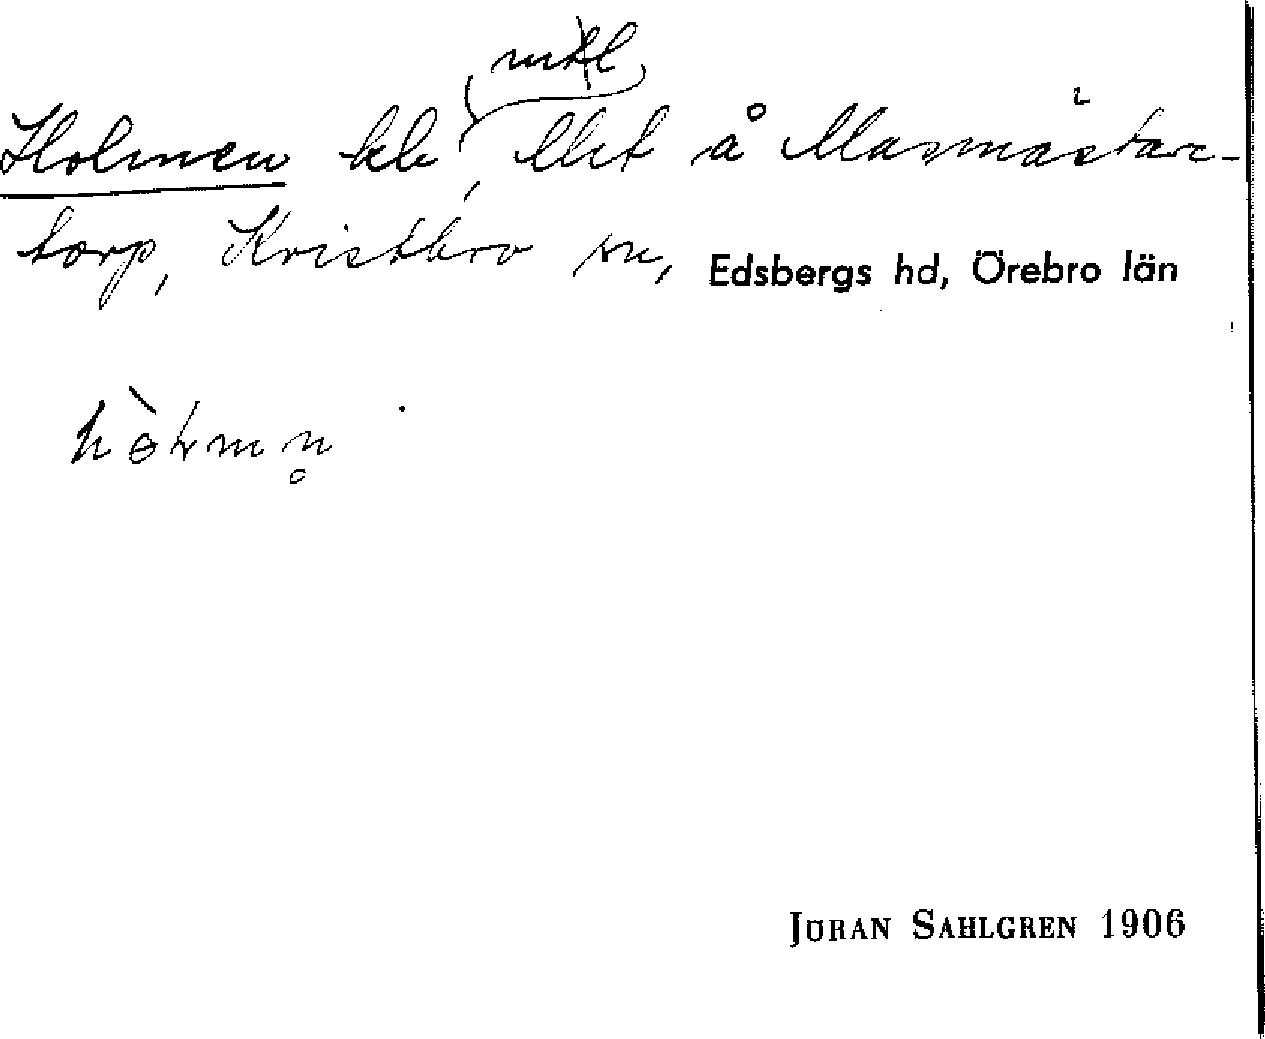 mtl
Holmen kb, Utet å Masmästar-
torp, Kristbro sn, Edsbergs hd, Örebro län
hòlmn̥
JÖRAN SAHLGREN 1906